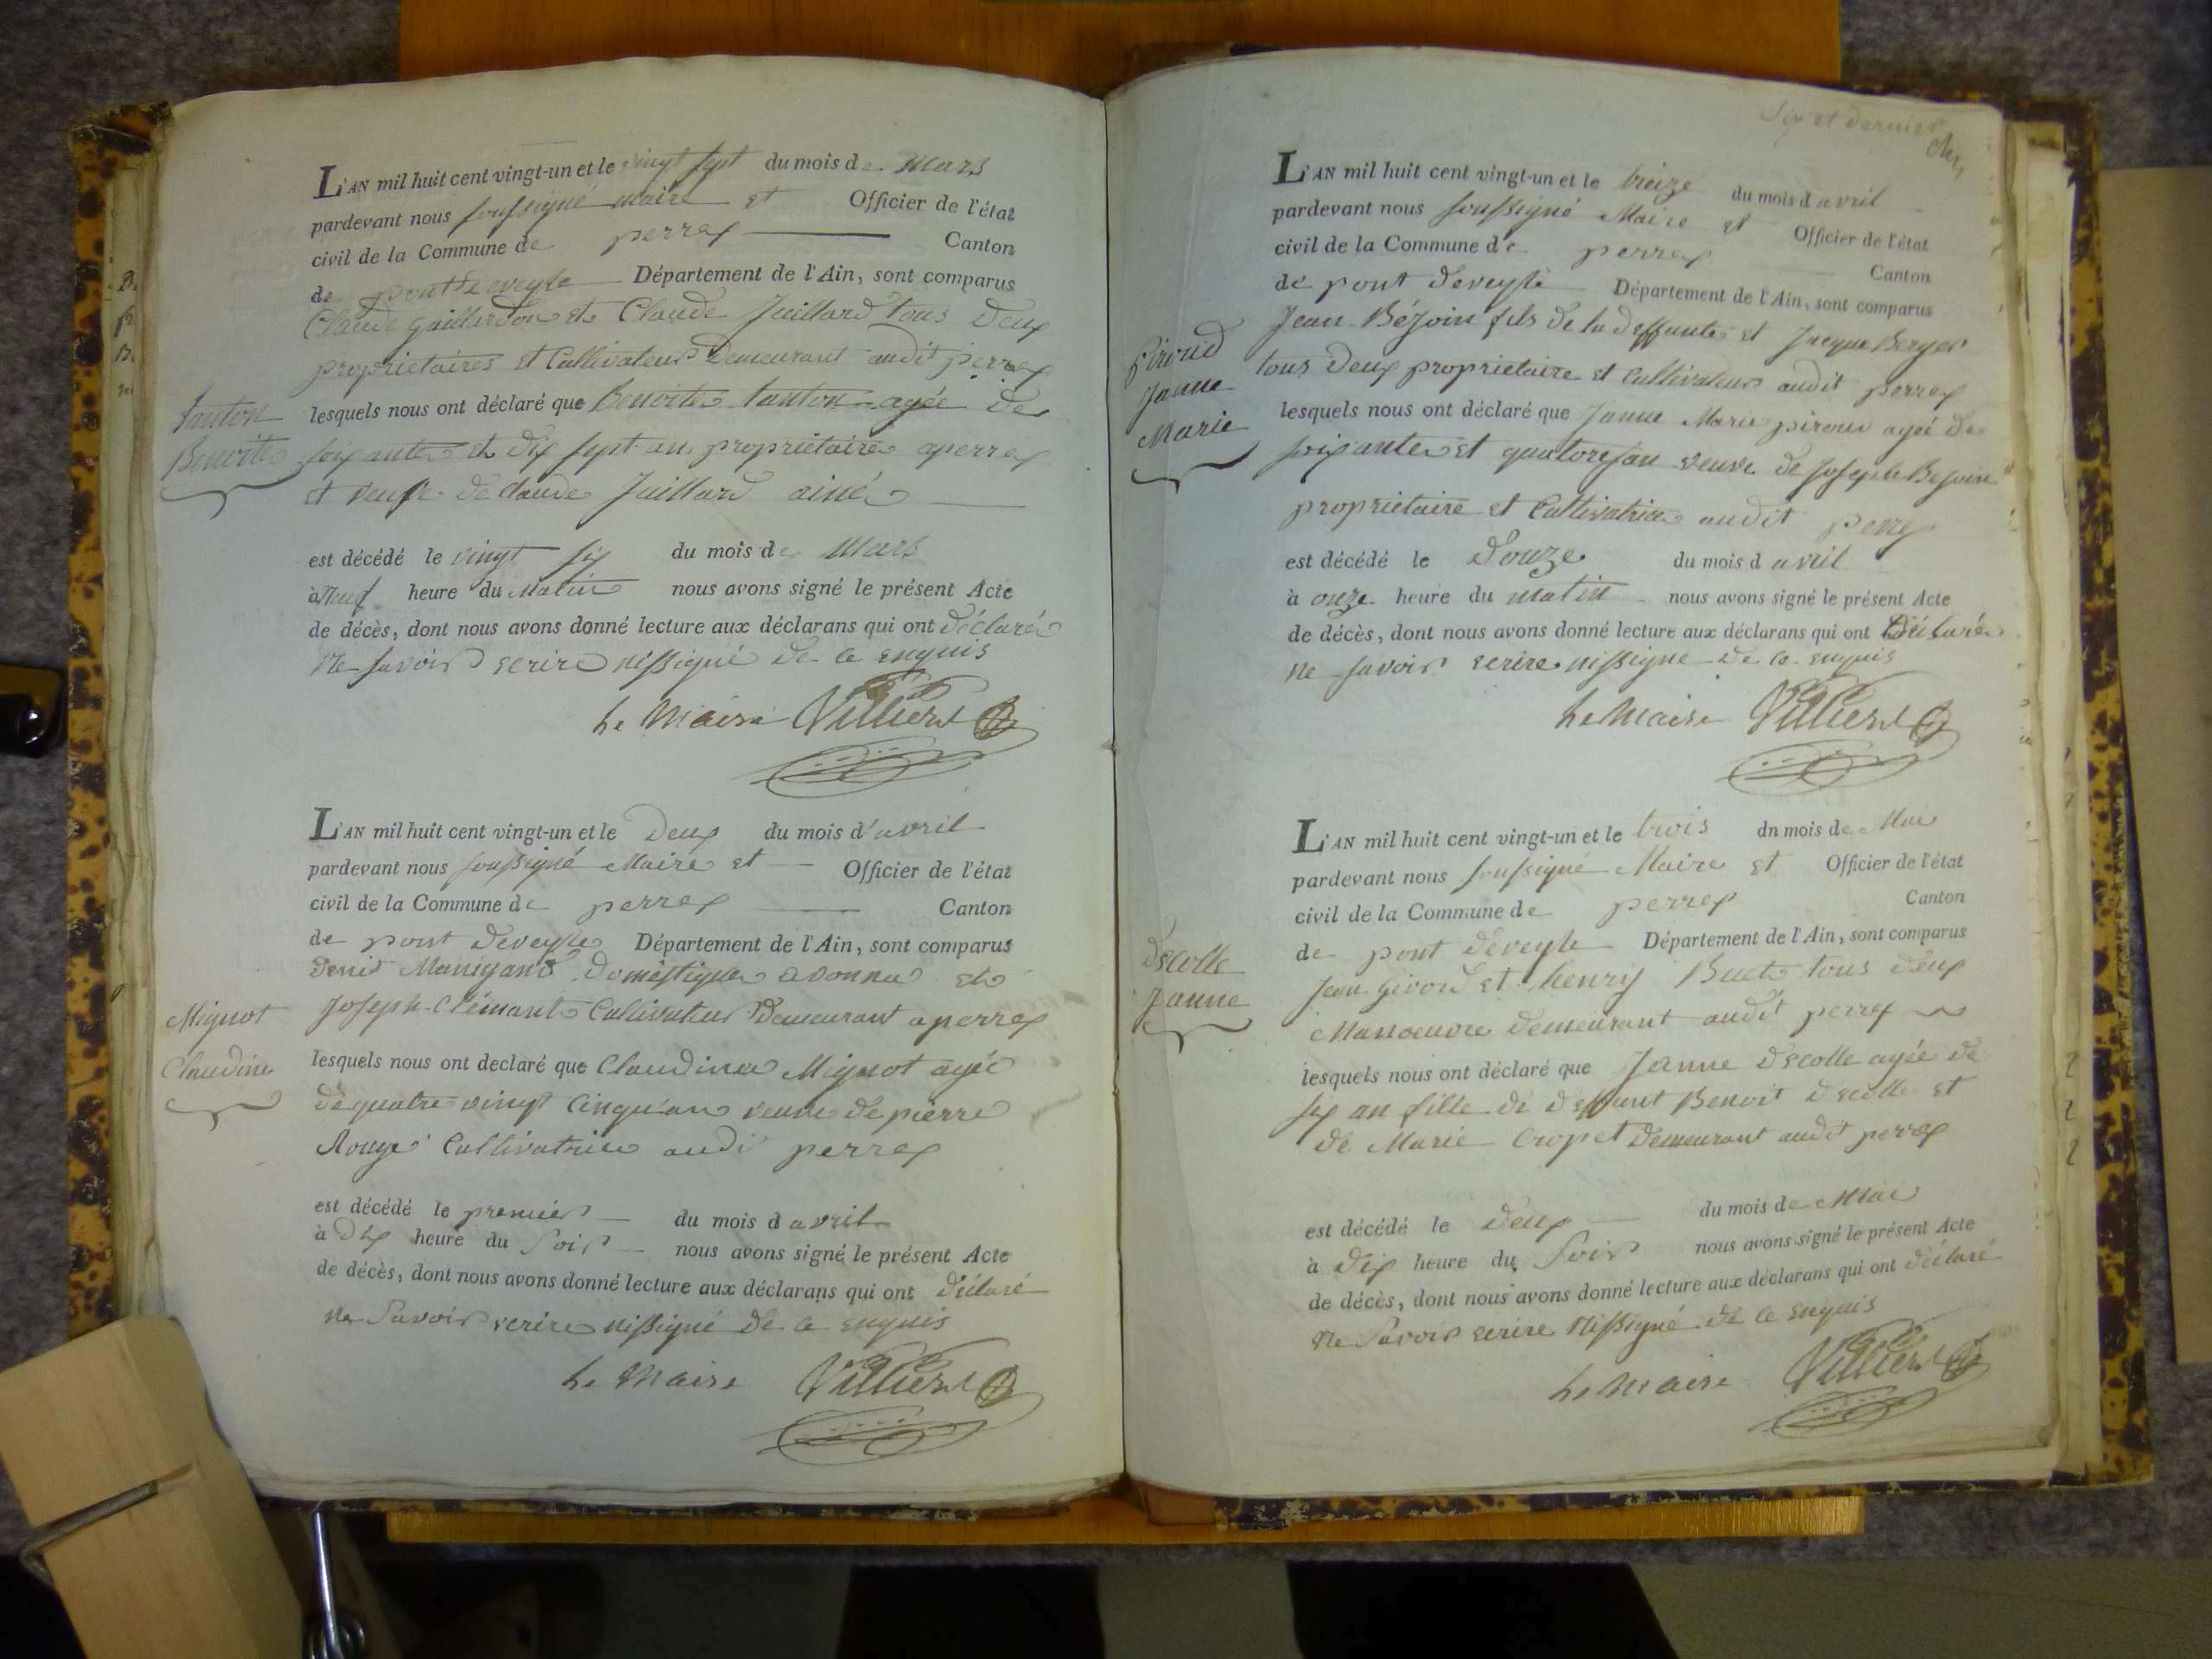 L'AN mil huit cent vingt-un et le vingt sept du mois de Mars
pardevant nous soussigné maire et Officier de l'état
civil de la Commune de perrex Canton
de pont Deveyle Département de l'Ain, sont comparus
Claude gaillardon et Claude Juillard tous Deux
proprietaires et Cultivateurs Demeurant audit perrex
tanton
Benoite
lesquels nous ont déclaré que Benoite tanton agée de
soixante et dix sept an proprietaire a perrex
et veuve de claude Juillard ainé
est décédé le vingt six du mois de Mars
à neuf heure du Matin nous avons signé le présent Acte
de décès, dont nous avons donné lecture aux déclarans qui ont déclaré
ne savoir ecrire nissigné de ce enquis
Le Maire Villiers
L'AN mil huit cent vingt-un et le Deux du mois d'avril
pardevant nous soussigné Maire et Officier de l'état
civil de la Commune de perrex Canton
de pont Deveyle Département de l'Ain, sont comparus
Denis Domestique a vonna et
Joseph Clémant Cultivateur Demeurant a perrex
Mignot
Claudine
lesquels nous ont declaré que Claudine Mignot agée
de quatre vingt cinqu'an veuve de pierre
Rouge Cultivatrice audit perrex
est décédé le premier du mois d avril
à Dix heure du Soir nous avons signé le présent Acte
de décès, dont nous avons donné lecture aux déclarans qui ont déclaré
ne Savoir ecrire nissigné de ce enquis
Le Maire Villiers
Six et dernier
L'AN mil huit cent vingt-un et le treize du mois d avril
pardevant nous soussigné Maire et Officier de l'état
civil de la Commune de perrex Canton
de pont Deveyle Département de l'Ain, sont comparus
Jean Béjoin fils de la deffunte et Jacque Berger
tous Deux proprietaire et cultivateur audit perrex
piroud
Janne
Marie
lesquels nous ont déclaré que Janne Marie piroud agée de
soixante et quatorze an veuve de Joseph Bejoin
proprietaire et Cultivatrice audit perrex
est décédé le Douze du mois d avril
à onze heure du matin nous avons signé le présent Acte
de décès, dont nous avons donné lecture aux déclarans qui ont déclaré
ne savoir ecrire nissigne de ce enquis
Le Maire Villiers
L'AN mil huit cent vingt-un et le trois dn mois de Mai
pardevant nous soussigné Maire et Officier de l'état
civil de la Commune de perrex Canton
de pont deveyle Département de l'Ain, sont comparus
Jean givord et henry Buet tous deux
Manoeuvre demeurant audit perrex
Descolle
Janne
lesquels nous ont déclaré que Janne Descolle agée de
six an fille de deffunt Benoit Descolle et
de Marie Cropet Demeurant audit perrex
est décédé le Deux du mois de Mai
à Dix heure du Soir nous avons signé le présent Acte
de décès, dont nous avons donné lecture aux déclarans qui ont déclaré
ne Savoir ecrire nissigné de ce enquis
Le Maire Villiers